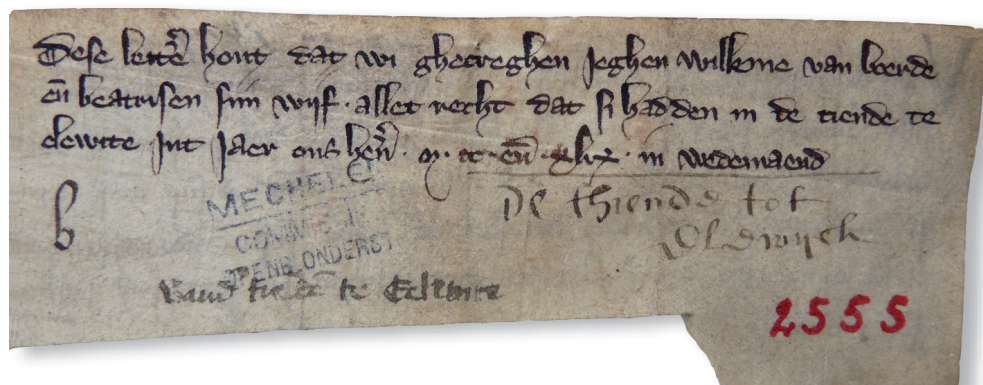 Dese lettē hout dat wi ghecreghen jeghen willeme van boerde
eñ beatrisen sijn wijf · allet recht dat si hadden in de tiende te
elewite Int Jaer ons heñ · m · cc · eñ · lix · in wedemaend
b
MECHELEN
COMMISSIE
OPENB. ONDERST
De thiende tot
vand tiēde te Elewite
2555